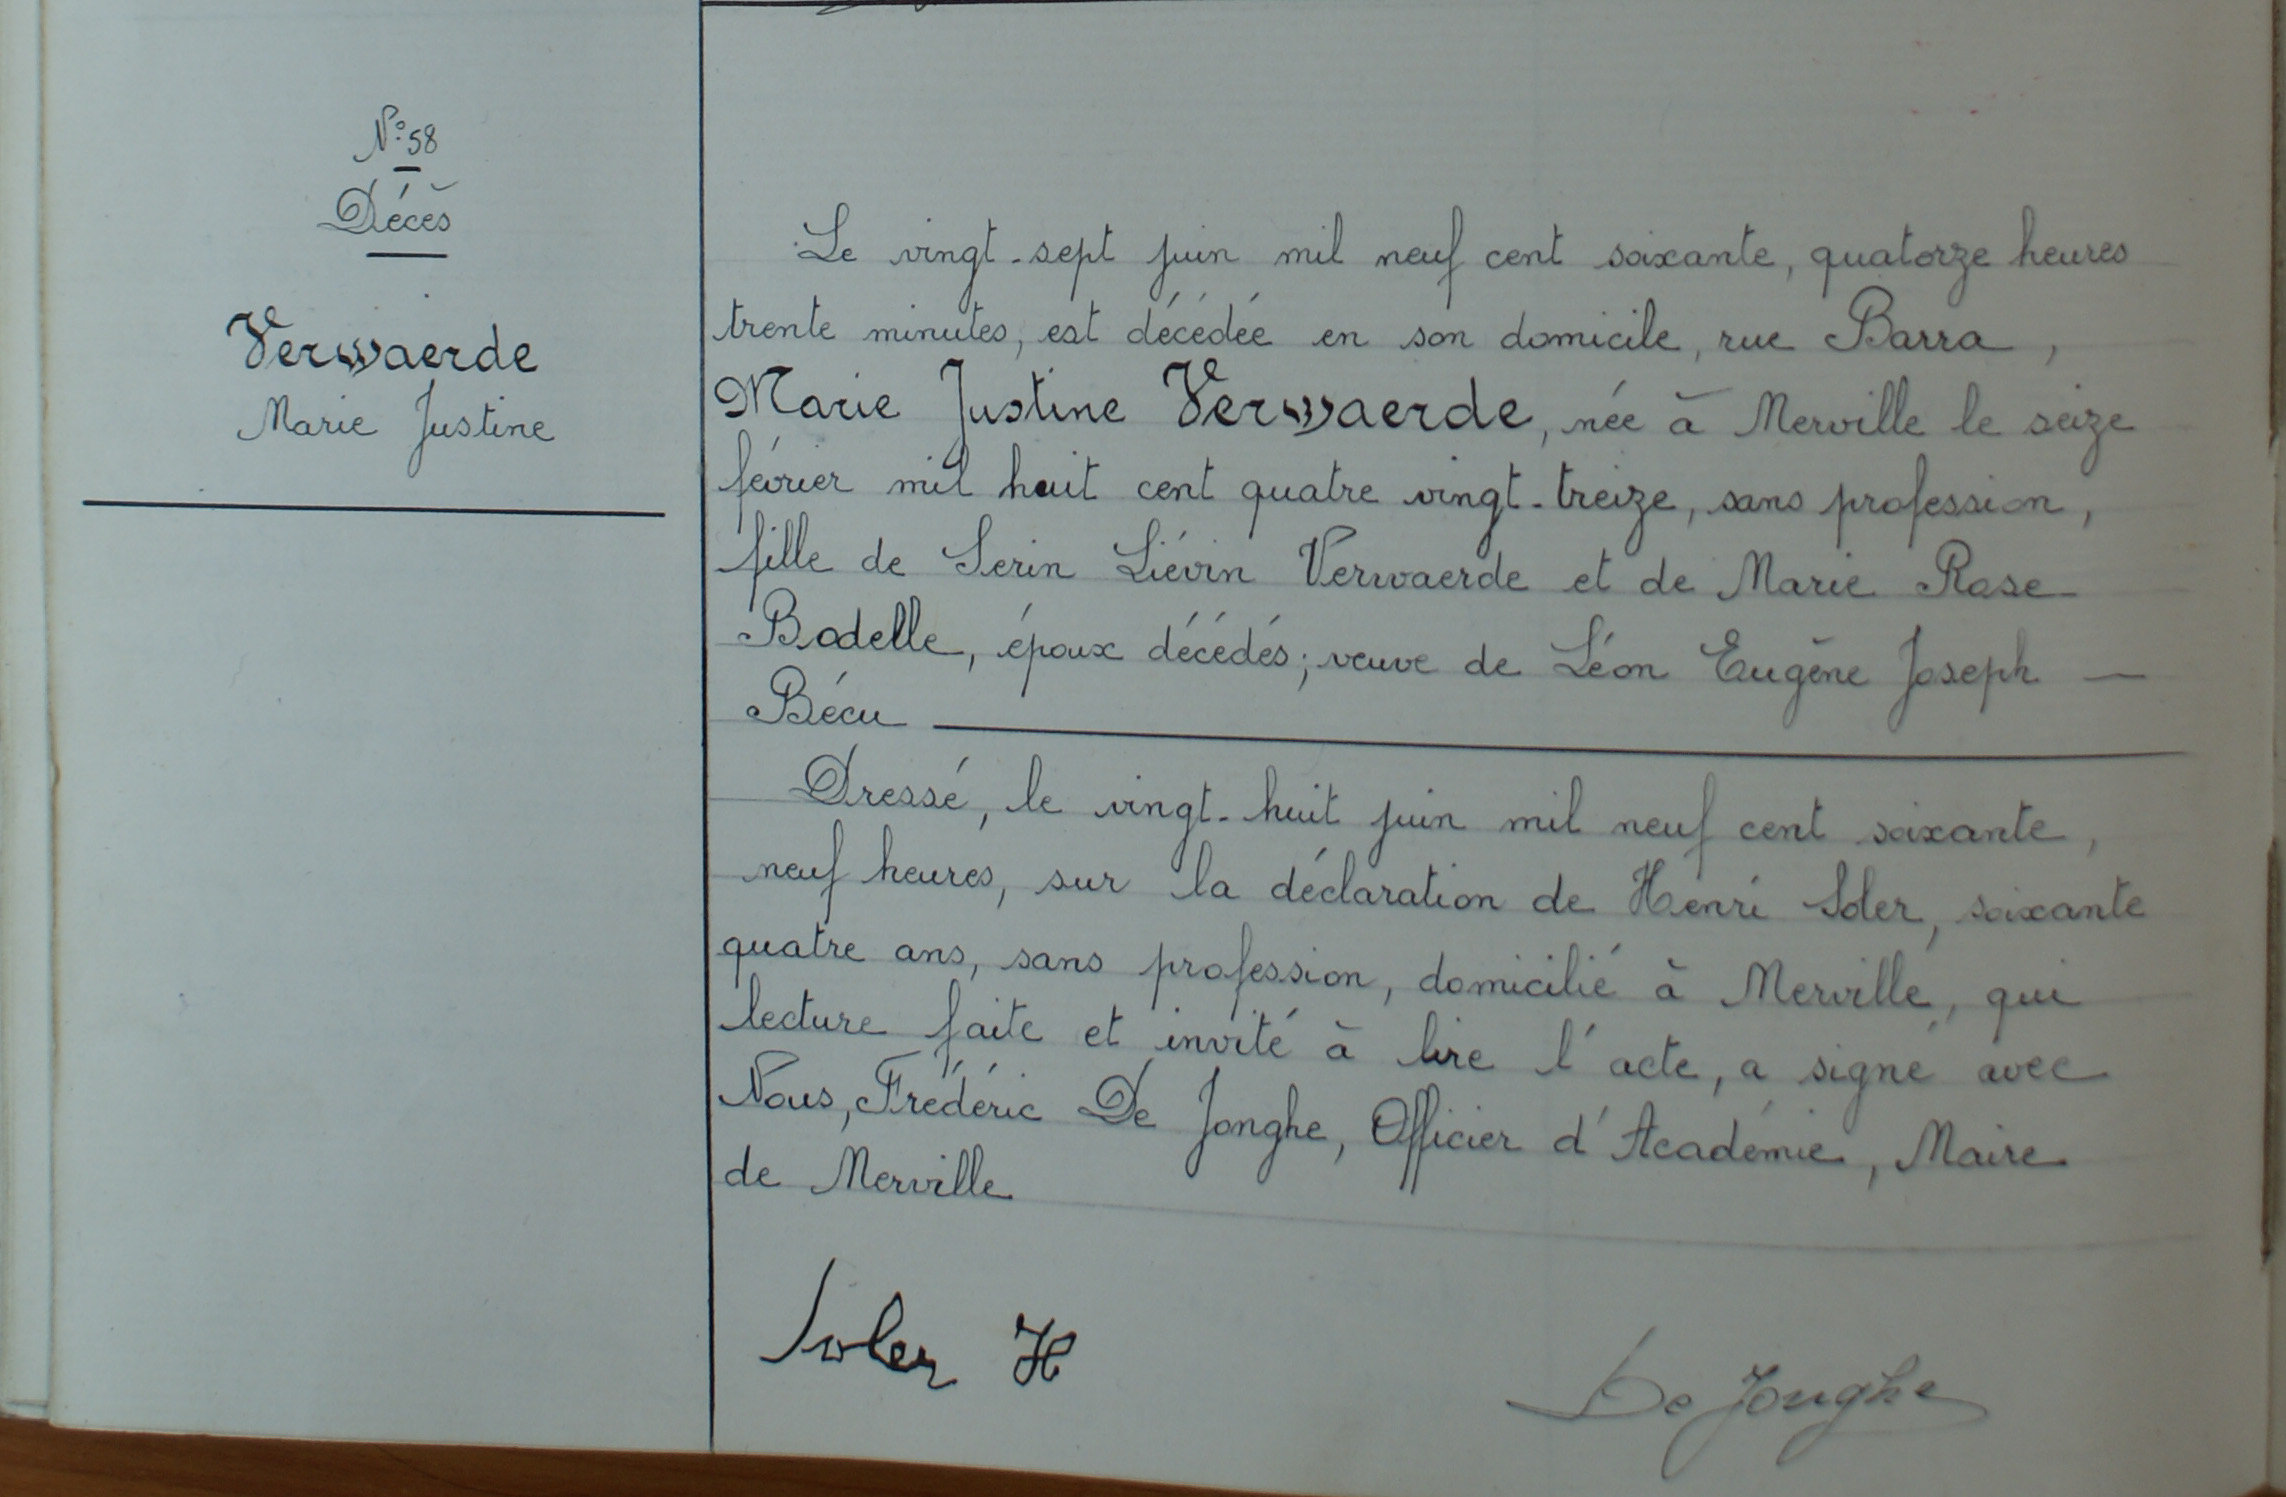 N° 58
Décès
Verwaerde
Marie Justine
Le vingt-sept juin mil neuf cent soixante, quatorze heures
trente minutes, est décédée en son domicile, rue Barra,
Marie Justine Verwaerde, née à Merville le seize
février mil huit cent quatre vingt-treize, sans profession,
fille de Serin Liévin Verwaerde et de Marie Rose
Bodelle, époux décédés; veuve de Léon Eugène Joseph —
Bécu
Dressé, le vingt-huit juin mil neuf cent soixante,
neuf heures, sur la déclaration de Henri Soler, soixante
quatre ans, sans profession, domicilié à Merville, qui
lecture faite et invité à lire l'acte, a signé avec
Nous, Frédéric De Jonghe, Officier d'Académie, Maire
de Merville
Soler H
De Jonghe